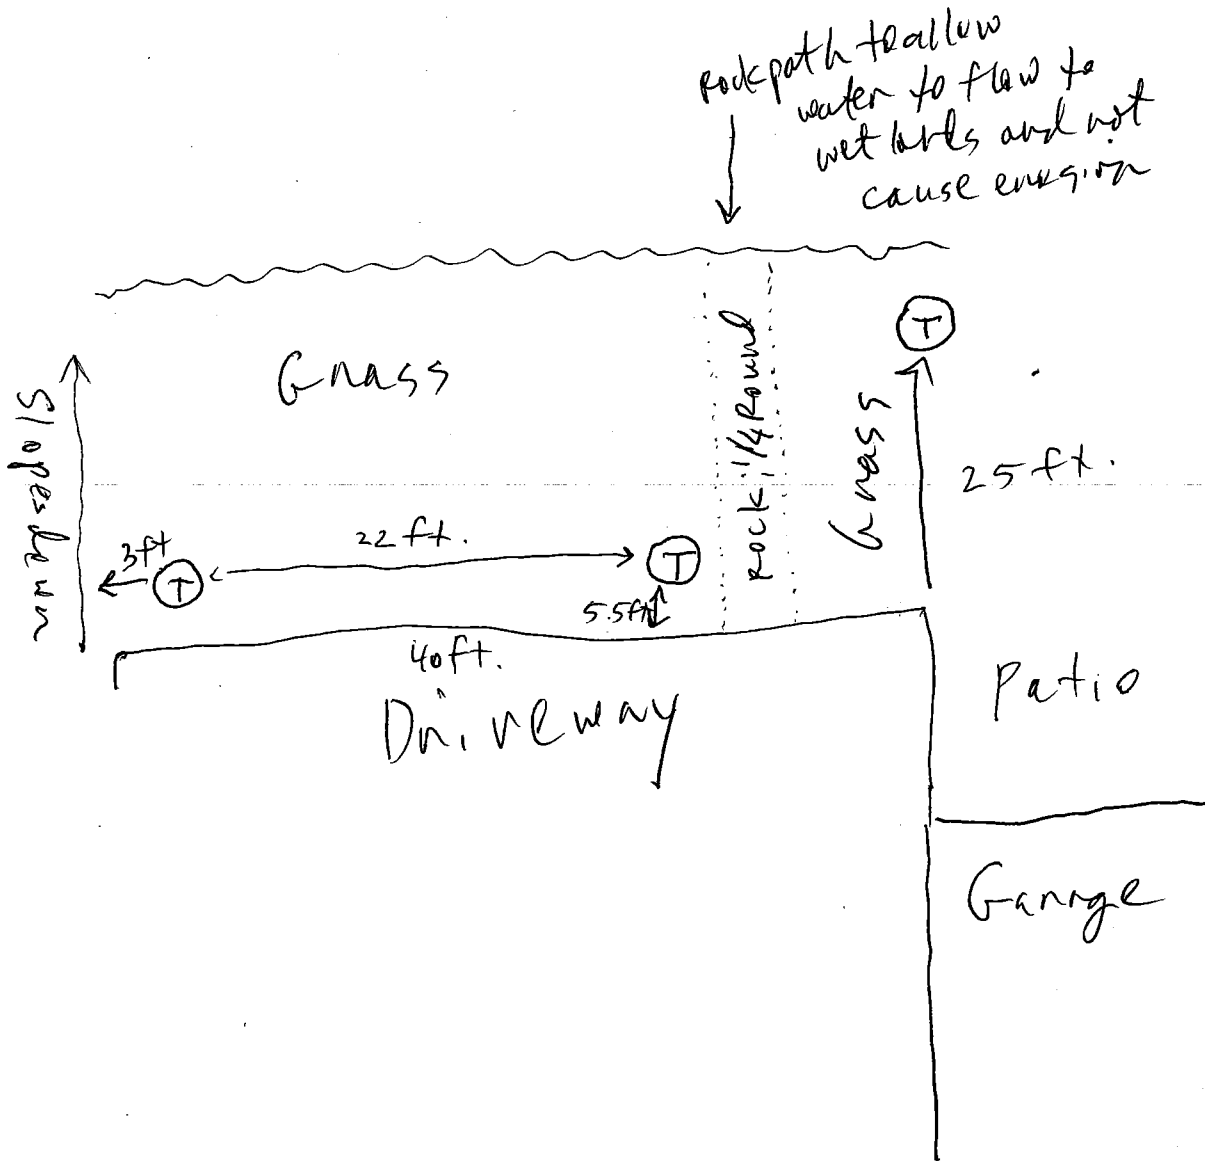 Rock path to allow
water to flow to
wetlands and not
cause erosion
T
Grass
Rock 1/4 Round
Grass
Slopes down
25 ft.
3ft
22 ft.
T
T
5.5ft
40ft.
Driveway
Patio
Garage